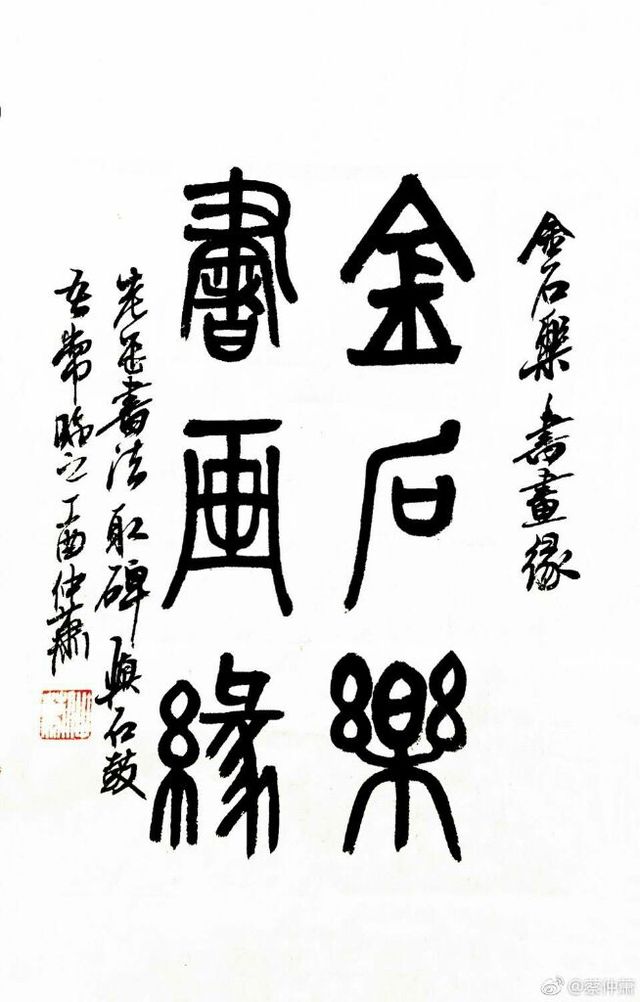 金石樂書畫緣
金石樂
書画緣
老缶書法取碑與石鼓
吾常臨之丁酉仲肅
@蔡仲肅